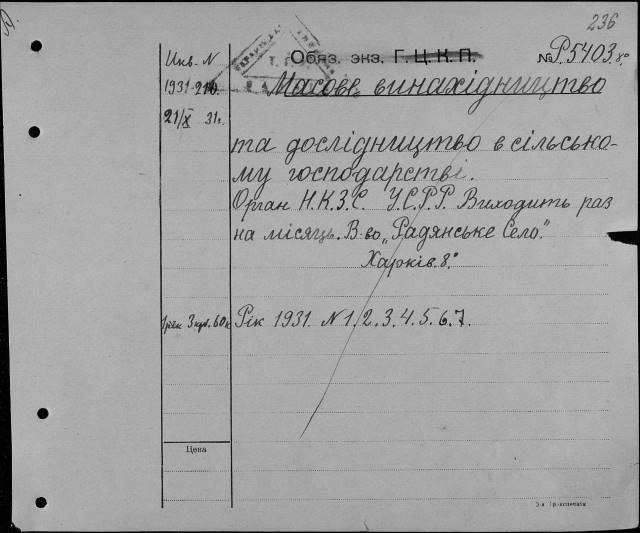 236
Инв. N
Обяз. экз. Г. Ц. К. П.
№ Р.5403. 8°
1931-210.
Масове винахідництво
21/X 31г.
та дослідництво в сільсько-
му господарстві.
Орган Н.К.З.С. У.С.Р.Р. Виходить раз
на місяць. В-во „Радянське Село."
Харків. 8°
3 крб. 60к.
Рік 1931. N 1. 2. 3. 4. 5. 6. 7.
Цена